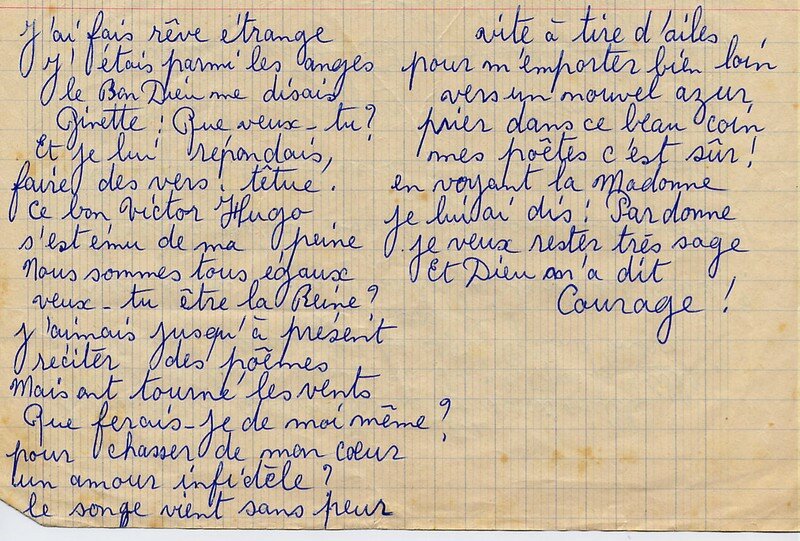 J'ai fais rêve étrange
J'étais parmi les anges
le Bon Dieu me disais
Ginette ! Que veux-tu ?
Et je lui répondais,
faire des vers, têtue !
Ce bon Victor Hugo
s'est ému de ma peine
Nous sommes tous égaux
veux-tu être la Reine ?
j'aimais jusqu'à présent
reciter des poêmes
Mais ont tourné les vents
Que ferais-je de moi même ?
pour chasser de mon cœur
un amour infidèle ?
le songe vient sans peur
vite à tire d'ailes
pour m'emporter bien loin
vers un nouvel azur
prier dans ce beau coin
mes poêtes c'est sûr !
en voyant la Madonne
je lui ai dis ! Pardonne
je veux rester très sage
Et Dieu m'a dit
Courage !